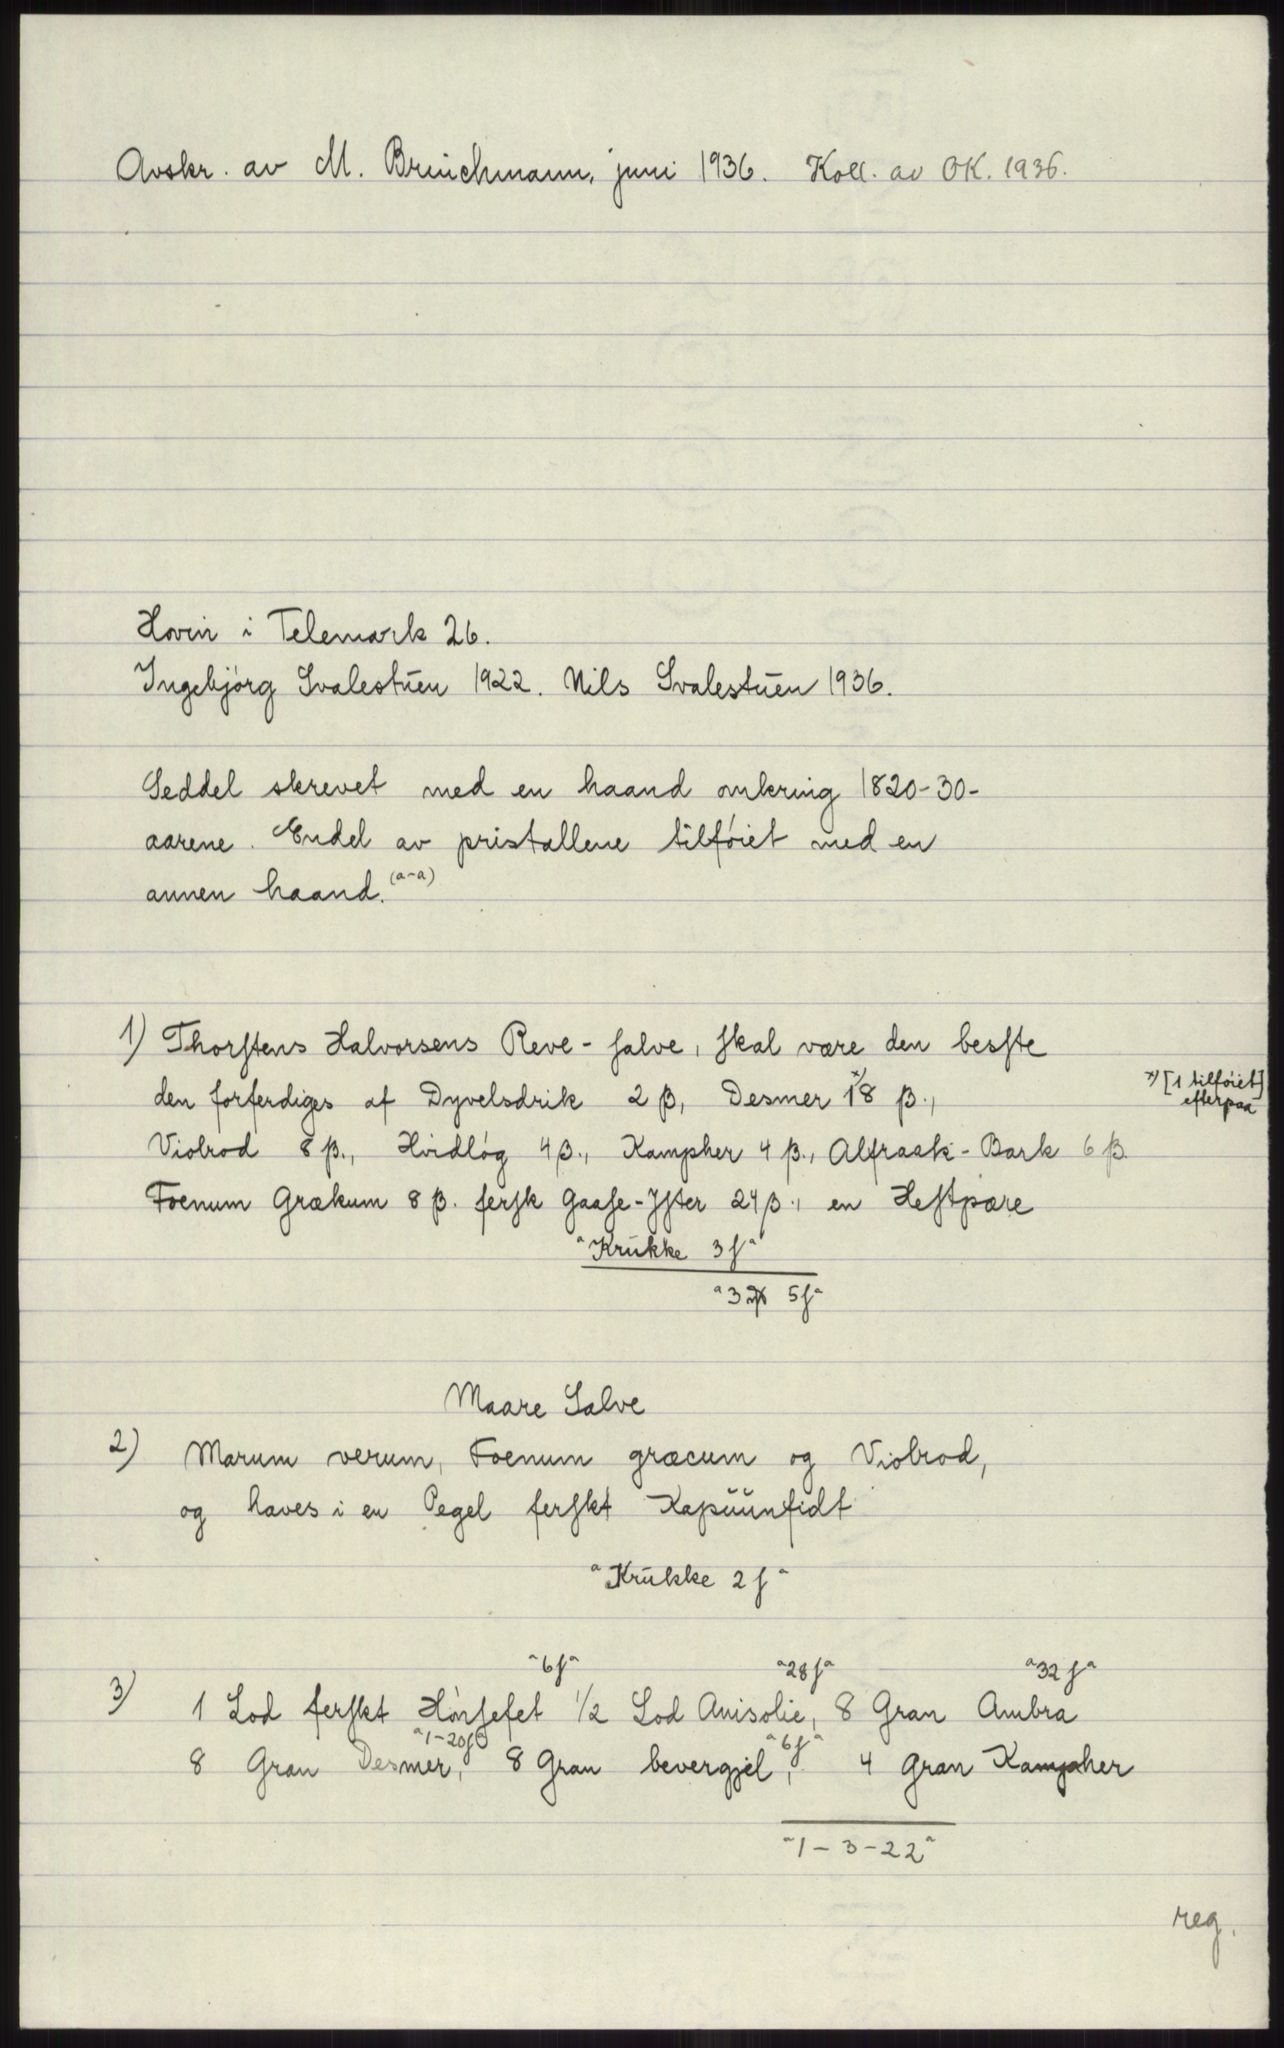 Avskr. av M. Brinchmann, juni 1936. Koll. av OK. 1936.
Hovin i Telemark 26.
Ingebjörg Svalestuen 1922. Nils Svalestuen 1936.
Seddel skrevet med en haand omkring 1820-30-
aarene. Endel av pristallene tilföiet med en
annen haand. (a-a)
1) Thorstens Halvorsens Reve-salve, skal være den besste
den forferdiges af Dyvelsdrik 2 β, Desmer 1x)8 β.,
x) [1 tilföiet]
efterpaa
Violrod 8 β., Hvidlög 4 β., Kampher 4 β., Alfraak-Bark 6 β
Foenum Grækum 8 β. fersk Gaase-Ister 24 β., en Hestpære
a Krukke 3 ſ a
a 3 5 ſ a
Maare Salve
2) Marum verum, Foenum græcum og Violrod,
og haves i en Pegel ferskt Kapuunfidt
a Krukke 2 ſ a
a 6 ſ a a 28 ſ a a 32 ſ a
3) 1 Lod ferskt Hönsefet 1/2 Lod Anisolie, 8 Gran Ambra
a 1-20 ſ a a 6 ſ a
8 Gran Desmer, 8 Gran bevergjel, 4 Gran Kampher
a 1-3-22 a
reg.